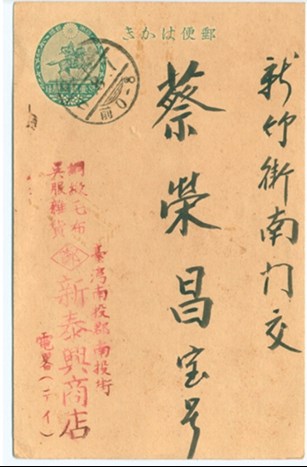 郵便はかき
新竹街南门交
蔡榮昌宝号
綢緞毛布
呉服雜貨
臺灣南投郡南投街
新泰興商店
電畧(ライ)